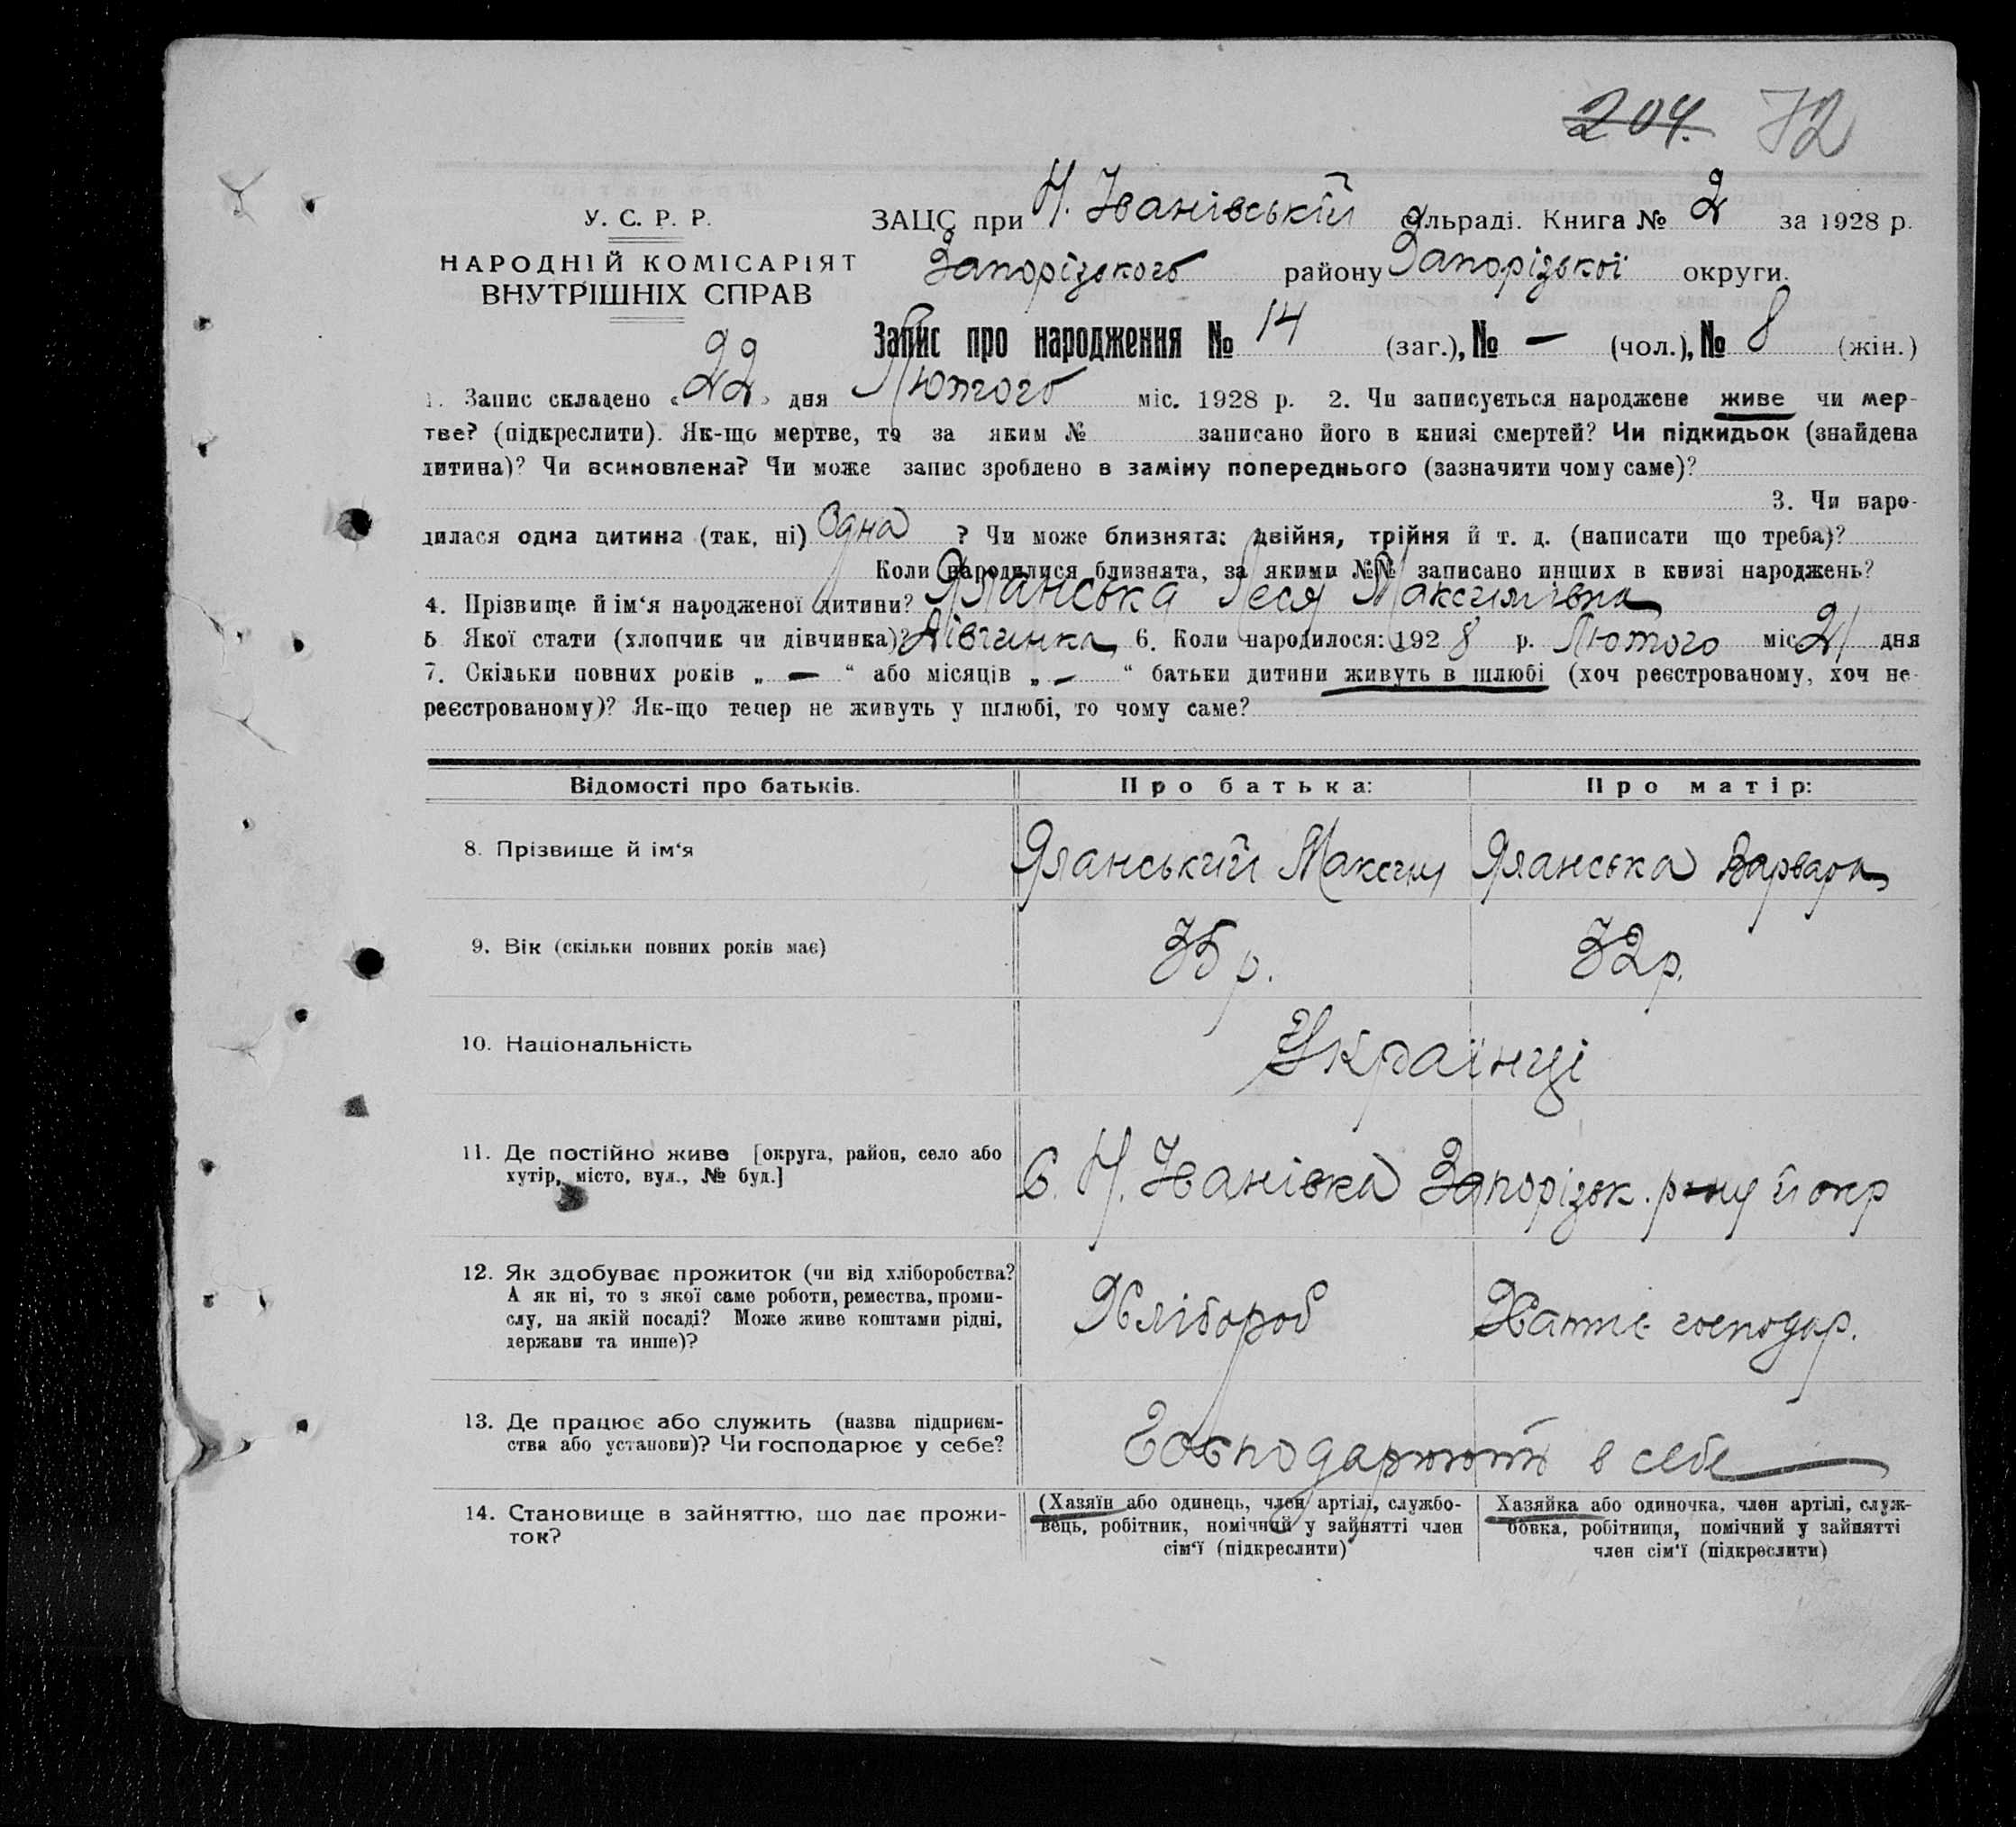 204. 72
У. С. Р. Р.
НАРОДНІЙ КОМІСАРІЯТ
ВНУТРІШНІХ СПРАВ
ЗАЦС при Н. Іванівській сільраді. Книга № 2 за 1928 р.
Запорізького району Запорізької округи.
Запис про народження № 14 (заг.), № — (чол.), № 8 (жін.)
1. Запис складено «22» дня Лютого міс. 1928 р. 2. Чи записується народжене живе чи мер-
тве? (підкреслити). Як-що мертве, то за яким № записано його в книзі смертей? Чи підкидьок (знайдена
дитина)? Чи всиновлена? Чи може запис зроблено в заміну попереднього (зазначити чому саме)?
3. Чи наро-
дилася одна дитина (так, ні) Одна ? Чи може близнята: двійня, трійня й т. д. (написати що треба)?
Коли народилися близнята, за якими №№ записано инших в книзі народжень?
4. Прізвище й ім‘я народженої дитини? Яланська Леся Максимівна
5 Якої стати (хлопчик чи дівчинка)? Дівчинка 6. Коли народилося: 1928 р. Лютого міс 21 дня
7. Скільки повних років „ — “ або місяців „ — “ батьки дитини живуть в шлюбі (хоч реєстрованому, хоч не
реєстрованому)? Як-що тепер не живуть у шлюбі, то чому саме?
Відомості про батьків. Про батька: Про матір:
8. Прізвище й ім‘я Яланський Максим Яланська Варвара
9. Вік (скільки повних років має) 35 р. 32 р.
10. Національність Українці
11. Де постійно живе [округа, район, село або
хутір, місто, вул., № буд.]
С. Н. Іванівка Запорізьк. р-ну й окр
12. Як здобуває прожиток (чи від хліборобства?
А як ні, то з якої саме роботи, ремества, проми-
слу, на якій посаді? Може живе коштами рідні,
держави та инше)?
Хлібороб Хатнє господар.
13. Де працює або служить (назва підприєм-
ства або установи)? Чи господарює у себе?
Господарюють в себе
14. Становище в зайняттю, що дає прожи-
ток?
(Хазяїн або одинець, член артілі, службо-
вець, робітник, помічний у зайнятті член
сім‘ї (підкреслити)
Хазяйка або одиночка, член артілі, служ-
бовка, робітниця, помічний у зайнятті
член сім‘ї (підкреслити)